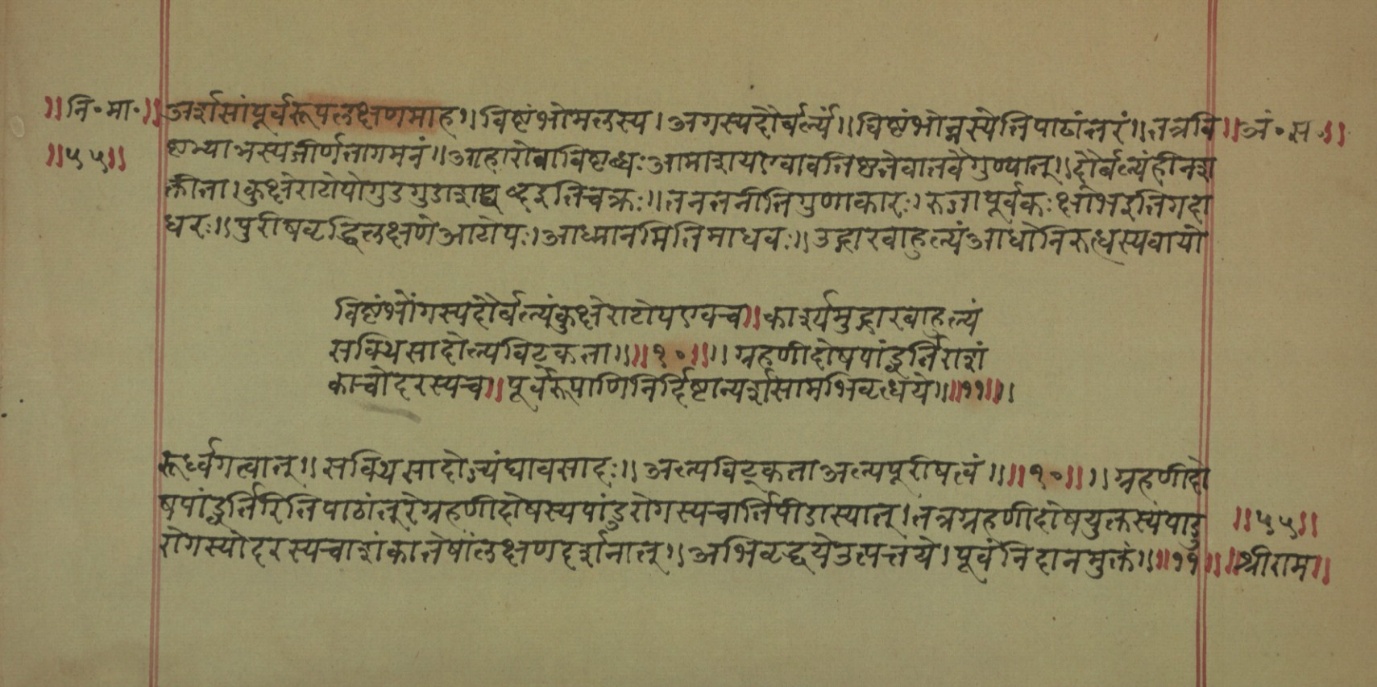 ॥नि॰मा॰॥ अर्शसांपूर्वरूपलक्षणमाह॥ विष्टंभोमलस्य। अगस्यदौर्बल्यं॥ विष्टंभोन्नस्येतिपाठांतरं॥ तत्रवि ॥अं॰स॰॥
॥५५॥ ष्टभ्याभस्यजीर्णतागमनं॥ आहारोवाविष्टब्धः आमाशयएवावतिष्ठतेवातवेगुण्यात्॥ दौर्बल्यंहीनश
क्तीता। कुक्षेराटोपोगुडगुडाशब्दइतिचक्रः॥ तनतनीतिगुणाकारः। रुजापूर्वकःक्षोभइतिगदा
धरः॥ पुरीषवृद्धिलक्षणेआटोपः। आध्मानमितिमाधवः॥ उद्गारबाहुल्यंआधोनिरुत्धस्यवायो
विष्टंभोंगस्यदौर्बल्यंकुक्षेराटोपएवच॥ कार्श्यमुद्गारबाहुल्यं
सक्थिसादोल्पविट्कता॥॥१०॥॥ ग्रहणीदोषपांड्वर्तिराशं
काचोदरस्यच॥ पूर्वरूपाणिनिर्दिष्टान्यर्शसामभिवृत्धये॥॥११॥॥
रूर्ध्वगत्वात्॥ सक्थिसादोज्यंघावसादः॥ अल्पविट्कताअल्पपूरीषत्वं॥॥१०॥॥ ग्रहणीदो
षपांड्वर्तिरितिपाठांतरेग्रहणीदोषस्यपांडुरोगस्यचार्तिपीडास्यात्। तत्रग्रहणीदोषयुक्तस्यपांडु ॥५५॥
रोगस्योदरस्यचाशंकातेषांलक्षणदर्शनात्॥ अभिवृद्धयेउत्पत्तये। पूर्वंनिदानमुक्तं॥॥११॥ ॥श्रीराम॥